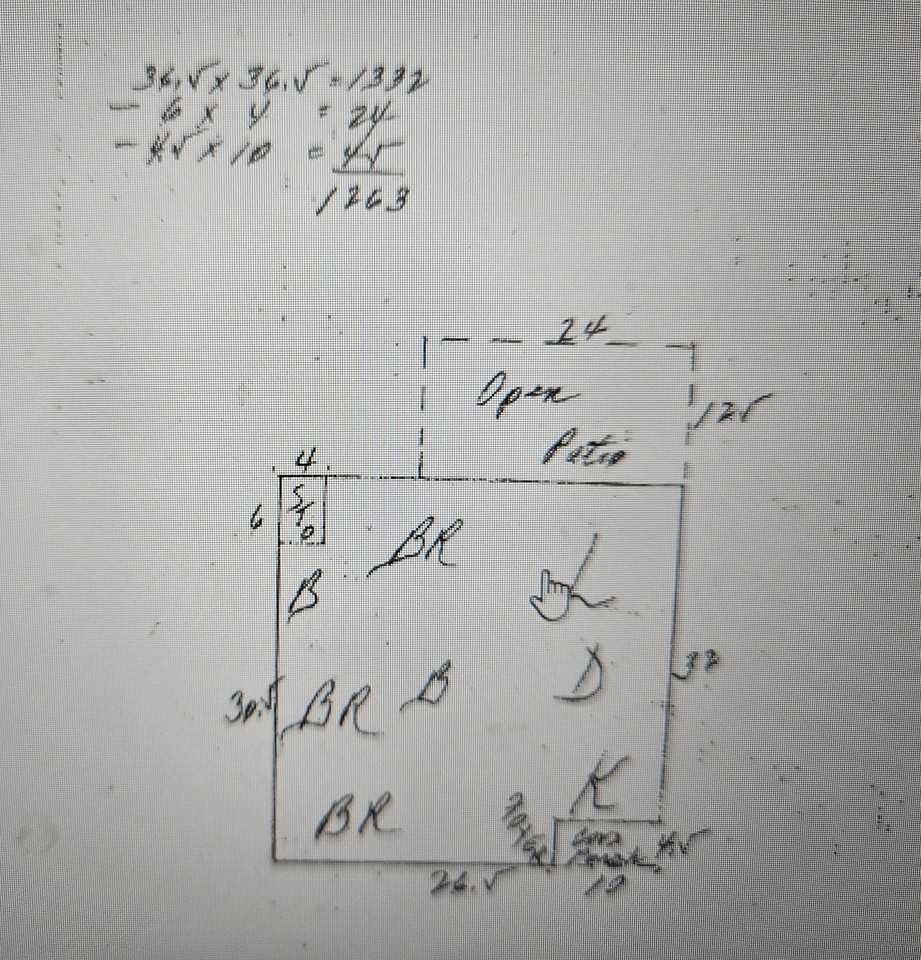 36.5 x 36.5 = 1332
- 6 x 4 = 24
- 4.5 x 10 = 45
1263
24
Open
12.5
Patio
4
6
STO
BR
B
L
D
32
30.5
BR
B
K
BR
4.5
26.5
10